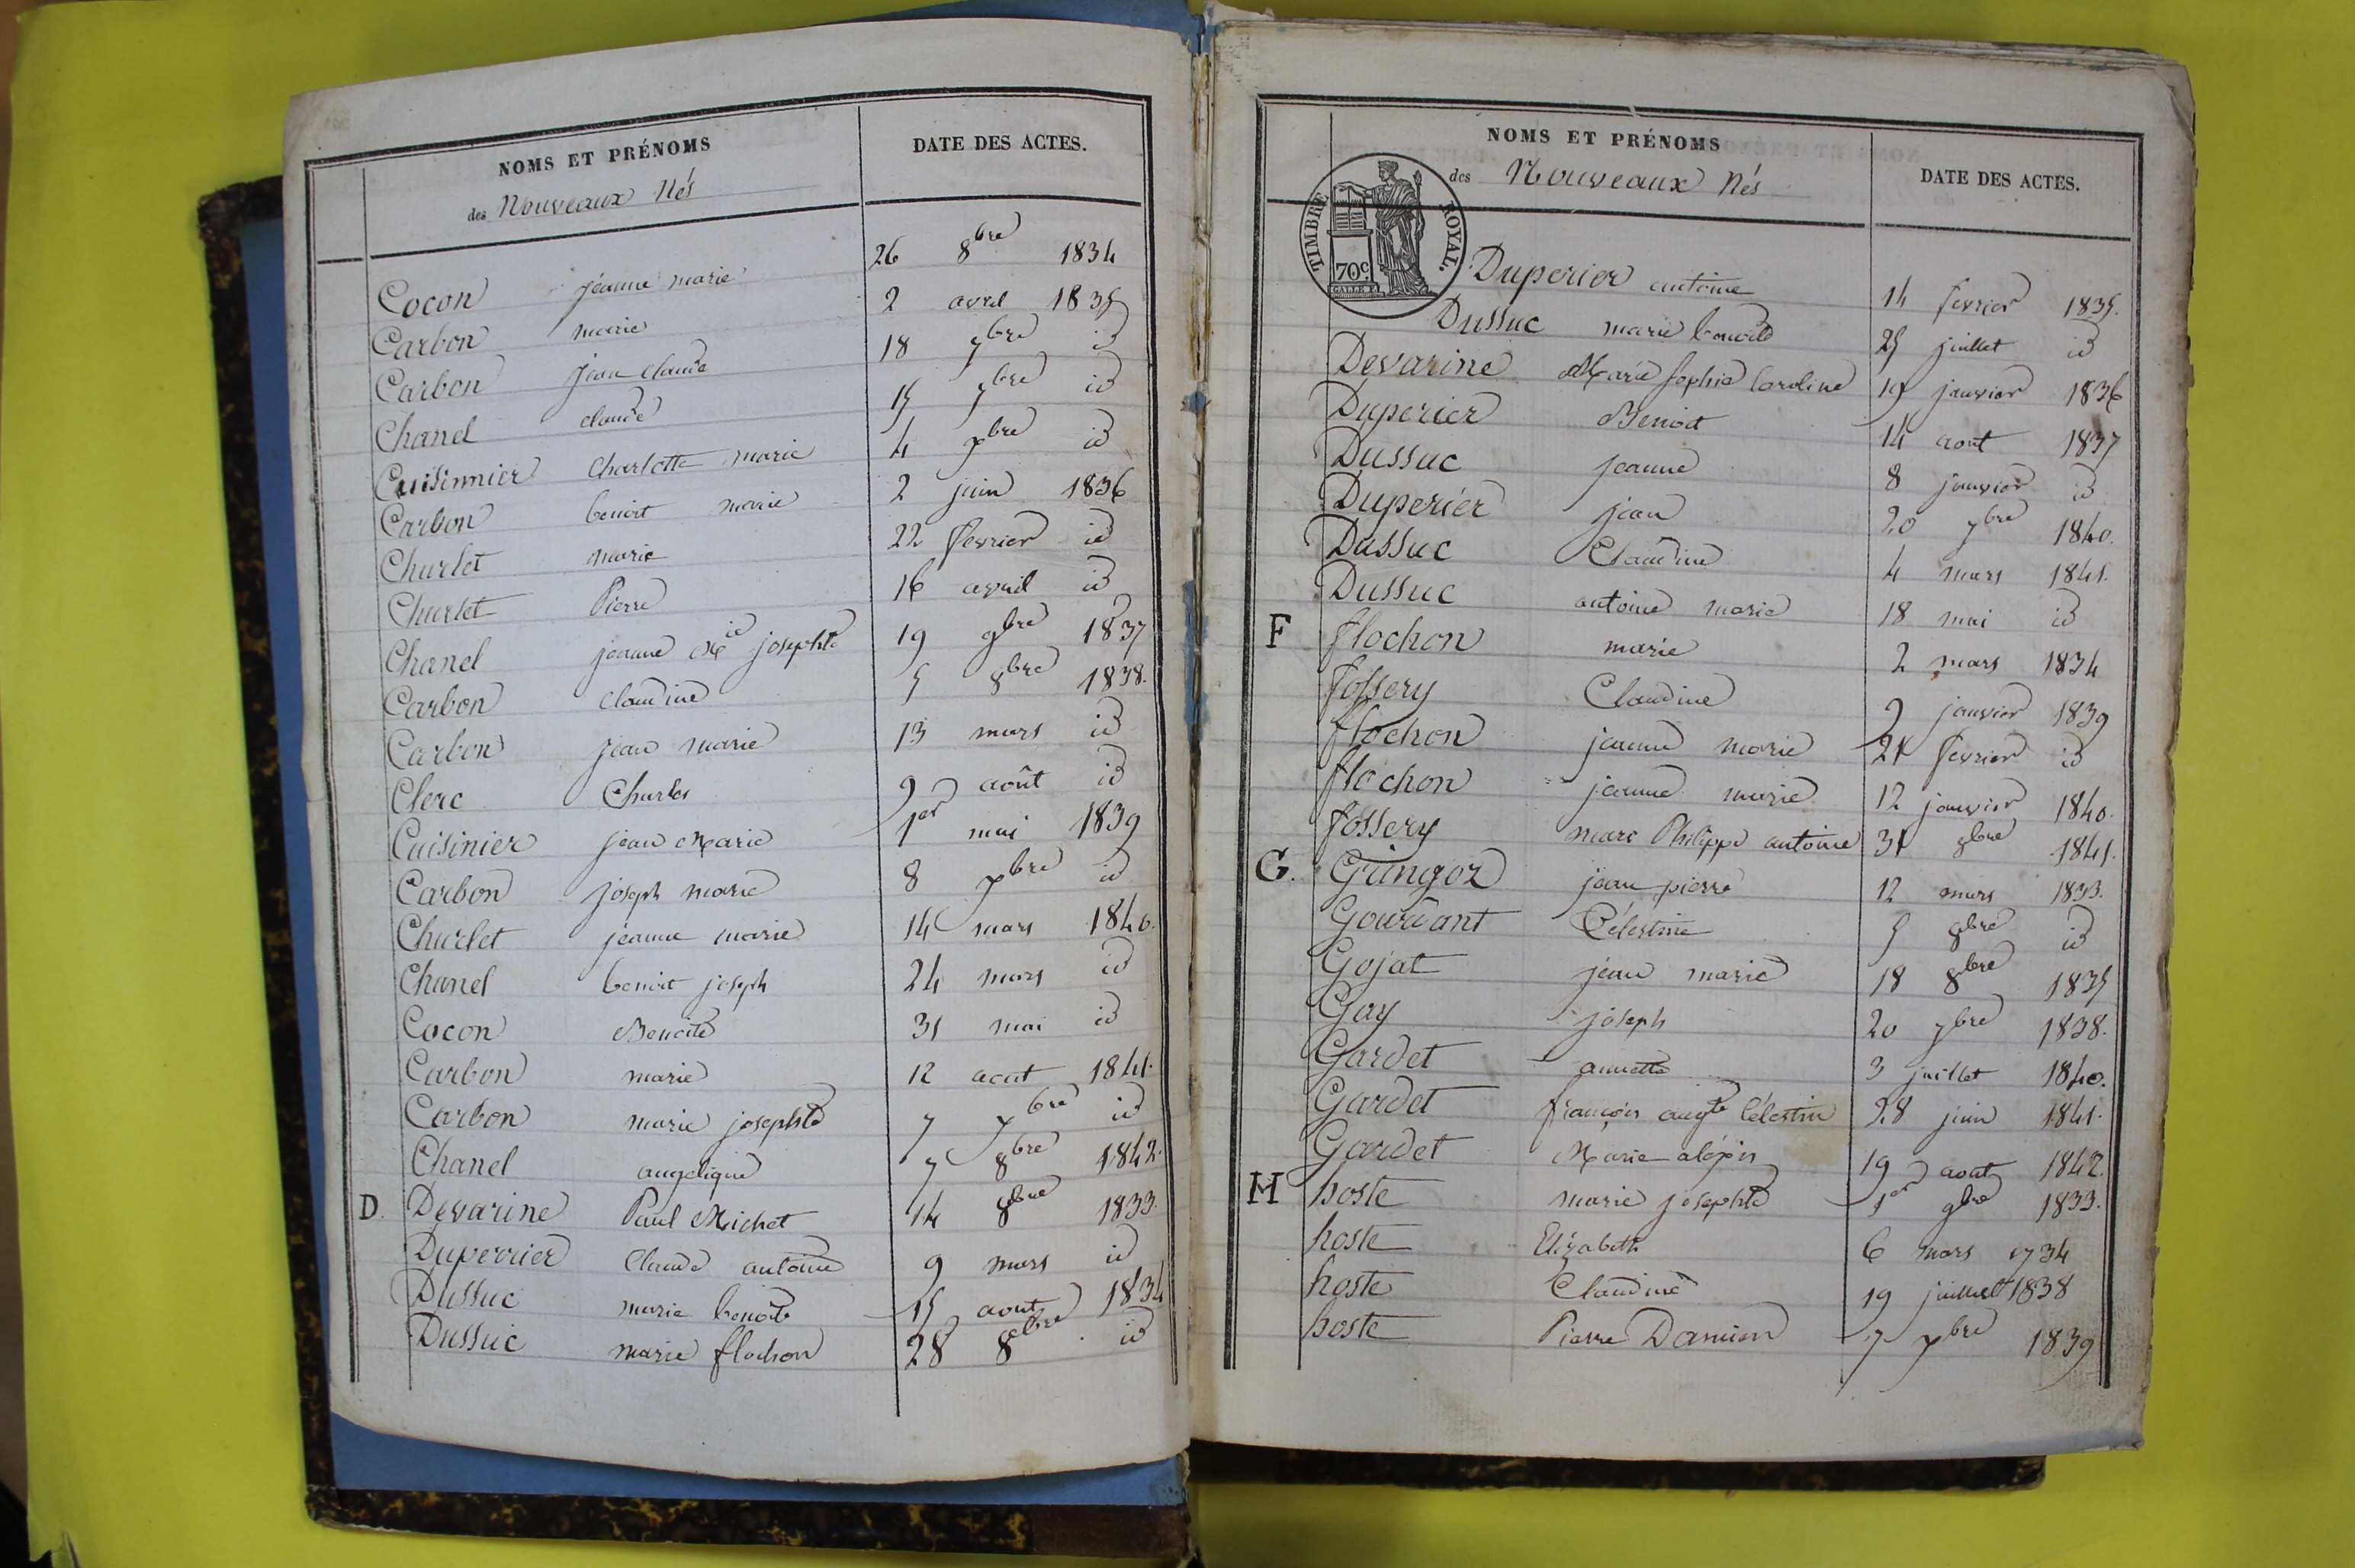 NOMS ET PRÉNOMS DATE DES ACTES.
des Nouveaux Nés
Cocon jeanne marie 26 8bre 1834
Carbon marie 2 avril 1835
Carbon jean claude 18 7bre id
Chanel claude 15 7bre id
Cuisinnier Charlotte marie 4 7bre id
Carbon benoit marie 2 juin 1836
Churlet marie 22 fevrier id
Churlet Pierre 16 avril id
Chanel jeanne Mie josephte 19 9bre 1837
Carbon Claudine 5 8bre 1838.
Carbon jean marie 13 mars id
Clerc Charles 9 août id
Cuisinier jean Marie 1er mai 1839
Carbon joseph marie 8 7bre id
Churlet jeanne marie 14 mars 1840.
Chanel benoit joseph 24 mars id
Cocon Benoite 31 mai id
Carbon marie 12 aout 1841.
Carbon marie josephte 7 7bre id
Chanel angelique 7 8bre 1842.
D. Devarine Paul Michel 14 8bre 1833.
Duperrier Claude antoine 9 mars id
Dussuc marie benoite 15 aout 1834
Dussuc marie flochon 28 8bre id
NOMS ET PRÉNOMS DATE DES ACTES.
des Nouveaux Nés
TIMBRE ROYAL.
70c.
Duperier antoine 14 fevrier 1835.
Dussuc marie benoite 25 juillet id
Devarine Marie Sophie Caroline 19 janvier 1836
Duperier Benoit 14 aout 1837
Dussuc jeanne 8 janvier id
Duperier jean 20 7bre 1840.
Dussuc Claudine 4 mars 1841.
Dussuc antoine marie 18 mai id
F flochon marie 2 mars 1834
fossery Claudine 9 janvier 1839
flochon jeanne marie 21 fevrier id
flochon jeanne marie 12 janvier 1840.
fossery marc Philippe antoine 31 8bre 1841.
G. Gringoz jean pierre 12 mars 1833.
Gourdant Célestine 5 9bre id
Gojat jean marie 18 8bre 1835
Gay joseph 20 7bre 1838.
Gardet annette 3 juillet 1840.
Gardet françois augte Célestin 28 juin 1841.
Gardet Marie aléxis 19 aout 1842.
H hoste marie josephte 1er 9bre 1833.
hoste Elizabeth 6 mars 1734
hoste Claudine 19 juillet 1838
hoste Pierre Damien 7 7bre 1839